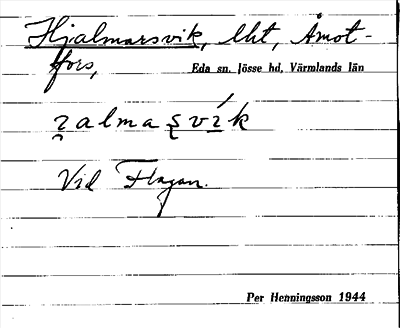 Hjalmarsvik, lht, Åmot-
fors, Eda sn. Jösse hd, Värmlands län
ɿ̯almaʂvík
Vid Flagan.
Per Henningsson 1944